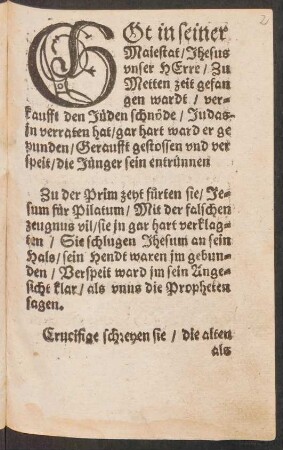 2
GOt in seiner
Maiestat/Jhesus
vnser HErre/Zu
Metten zeit gefan
gen wardt/ver-
kaufft den Jüden schnöde/Judas
jn verraten hat/gar hart ward er ge
punden/Geraufft gestossen vnd ver
speit/die Jünger sein entrünnen
Zu der Prim zeyt fürten sie/Je-
sum für Pilatum/Mit der falschen
zeugnus vil/sie jn gar hart verklag-
ten/Sie schlugen Jhesum an sein
Hals/sein Hendt waren jm gebun-
den/Verspeit ward jm sein Ange-
sicht klar/als vnns die Propheten
sagen.
Crucifige schreyen sie/die alten
als